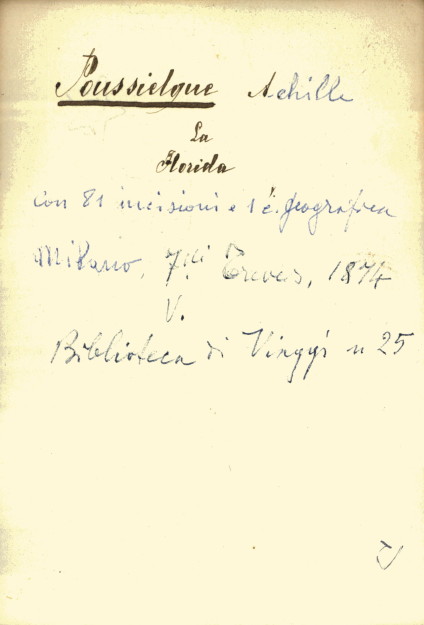 Poussielgue Achille
La
Florida
con 81 incisioni e 1 c. geografica
Milano, F.lli Treves, 1874
V.
Biblioteca di Viaggi n 25